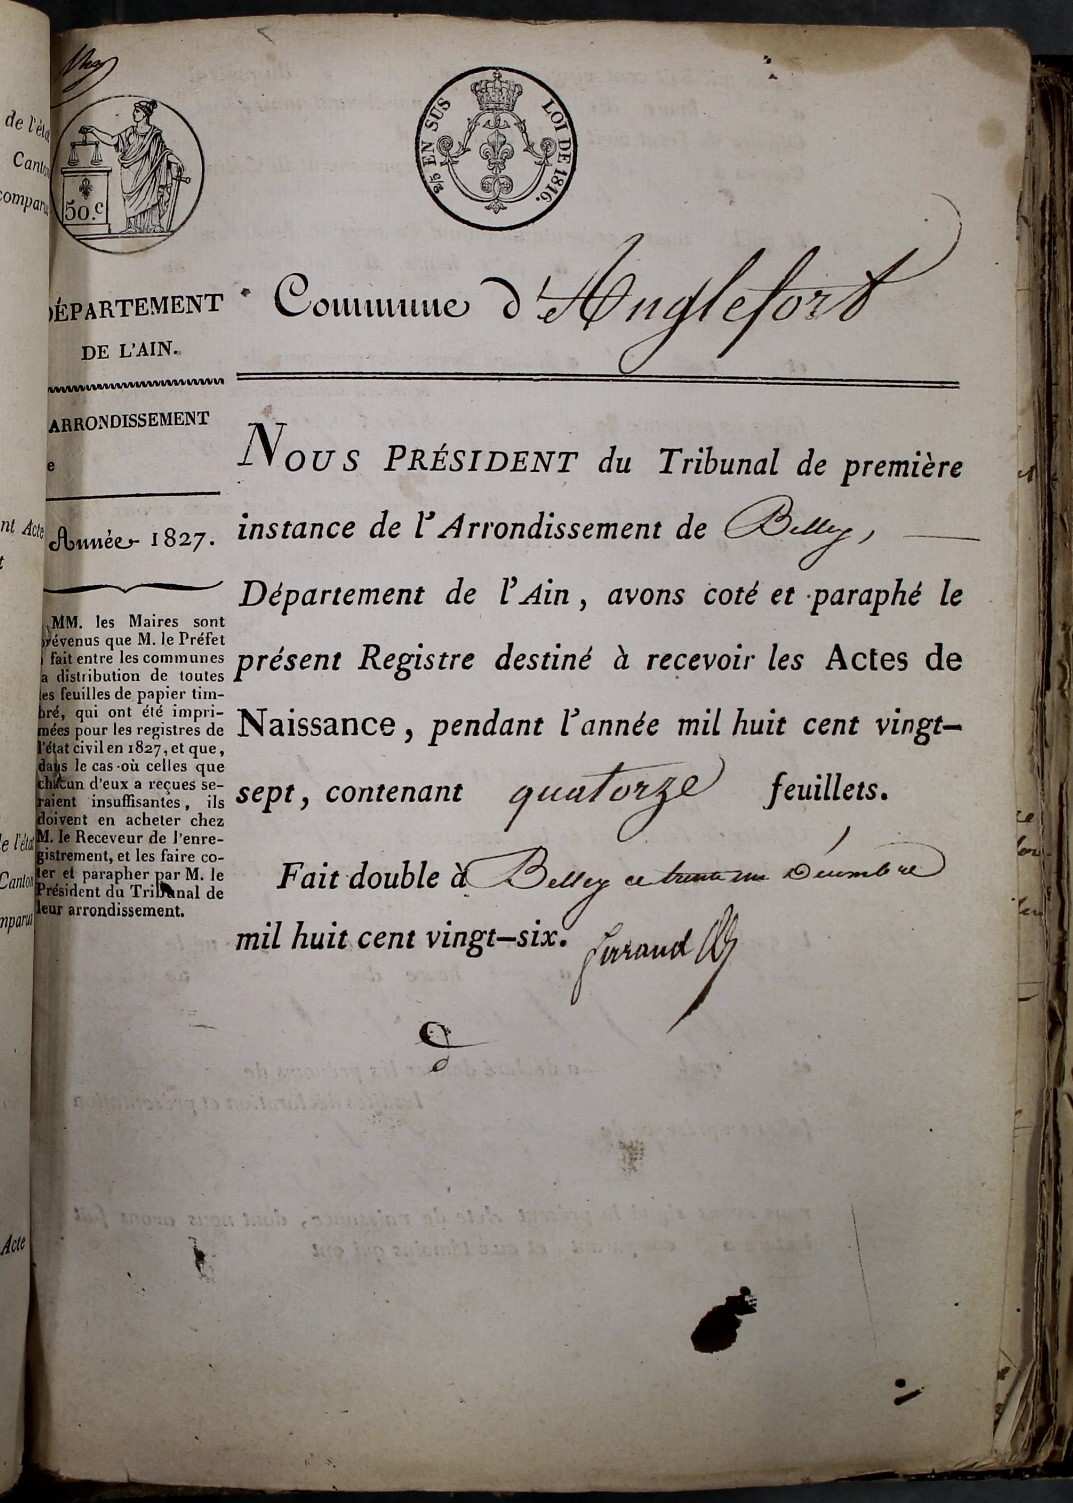 de l'éta
Canton
comparu
50.c
2/5 EN SUS
LOI DE 1816.
DÉPARTEMENT
DE L'AIN.
ARRONDISSEMENT
e
Année 1827.
MM. les Maires sont
prévenus que M. le Préfet
a fait entre les communes
la distribution de toutes
les feuilles de papier tim-
bré, qui ont été impri-
mées pour les registres de
l'état civil en 1827, et que,
dans le cas où celles que
chacun d'eux a reçues se-
raient insuffisantes, ils
doivent en acheter chez
M. le Receveur de l'enre-
gistrement, et les faire co-
ter et parapher par M. le
Président du Tribunal de
leur arrondissement.
Commune d'Anglefort
NOUS PRÉSIDENT du Tribunal de première
instance de l'Arrondissement de Belley,
Département de l'Ain, avons coté et paraphé le
présent Registre destiné à recevoir les Actes de
Naissance, pendant l'année mil huit cent vingt-
sept, contenant quatorze feuillets.
Fait double à Belley ce trente un Décembre
mil huit cent vingt-six.
nt Acte
t
de l'éta
Canton
mparu
Acte